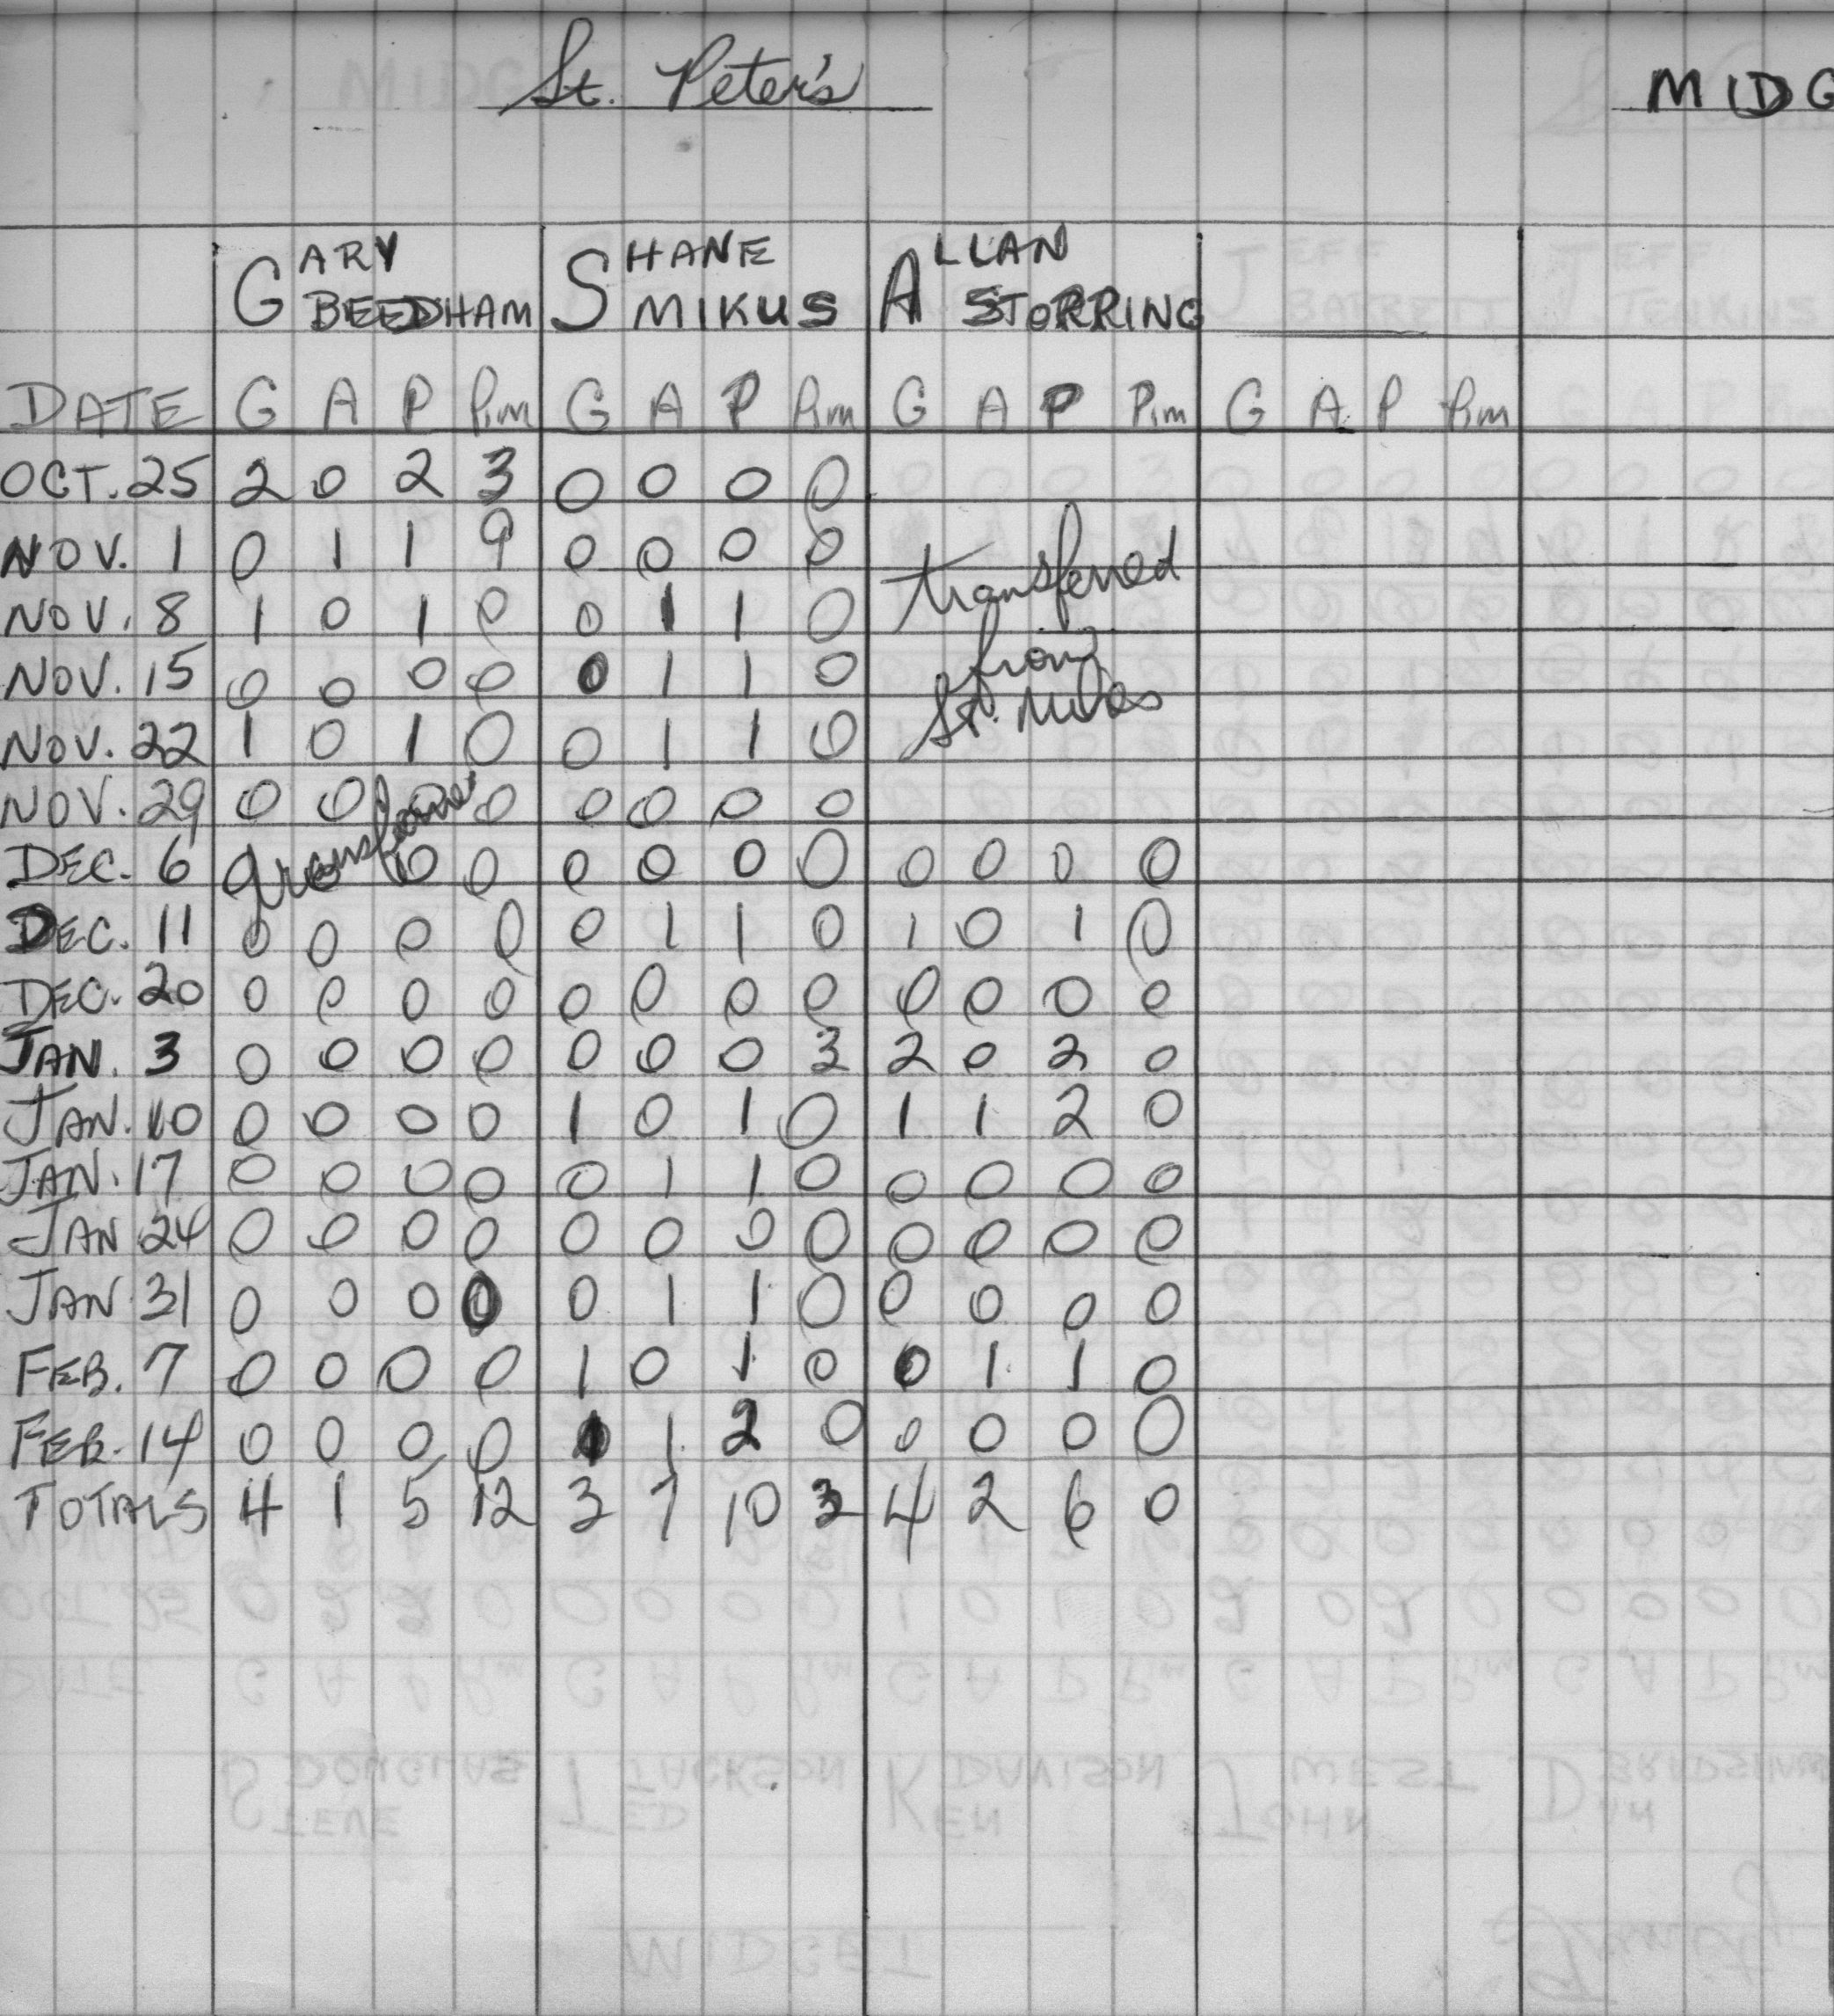 St. Peter's
MIDG
GARY BEEDHAM SHANE MIKUS ALLAN STORRING
DATE G A P Pim G A P Pim G A P Pim G A P Pim
OCT. 25 2 0 2 3 0 0 0 0
NOV. 1 0 1 1 9 0 0 0 0
transferred
NOV. 8 1 0 1 0 0 1 1 0
from
NOV. 15 0 0 0 0 0 1 1 0
St.
NOV. 22 1 0 1 0 0 1 1 0
NOV. 29 0 0 0 0 0 0 0 0
DEC. 6 0 0 0 0 0 0 0 0 0 0
DEC. 11 0 0 0 0 0 1 1 0 1 0 1 0
DEC. 20 0 0 0 0 0 0 0 0 0 0 0 0
JAN. 3 0 0 0 0 0 0 0 3 2 0 2 0
JAN. 10 0 0 0 0 1 0 1 0 1 1 2 0
JAN. 17 0 0 0 0 0 1 1 0 0 0 0 0
JAN 24 0 0 0 0 0 0 0 0 0 0 0 0
JAN 31 0 0 0 0 0 1 1 0 0 0 0 0
FEB. 7 0 0 0 0 1 0 1 0 0 1 1 0
FEB. 14 0 0 0 0 1 1 2 0 0 0 0 0
TOTALS 4 1 5 12 3 7 10 3 4 2 6 0